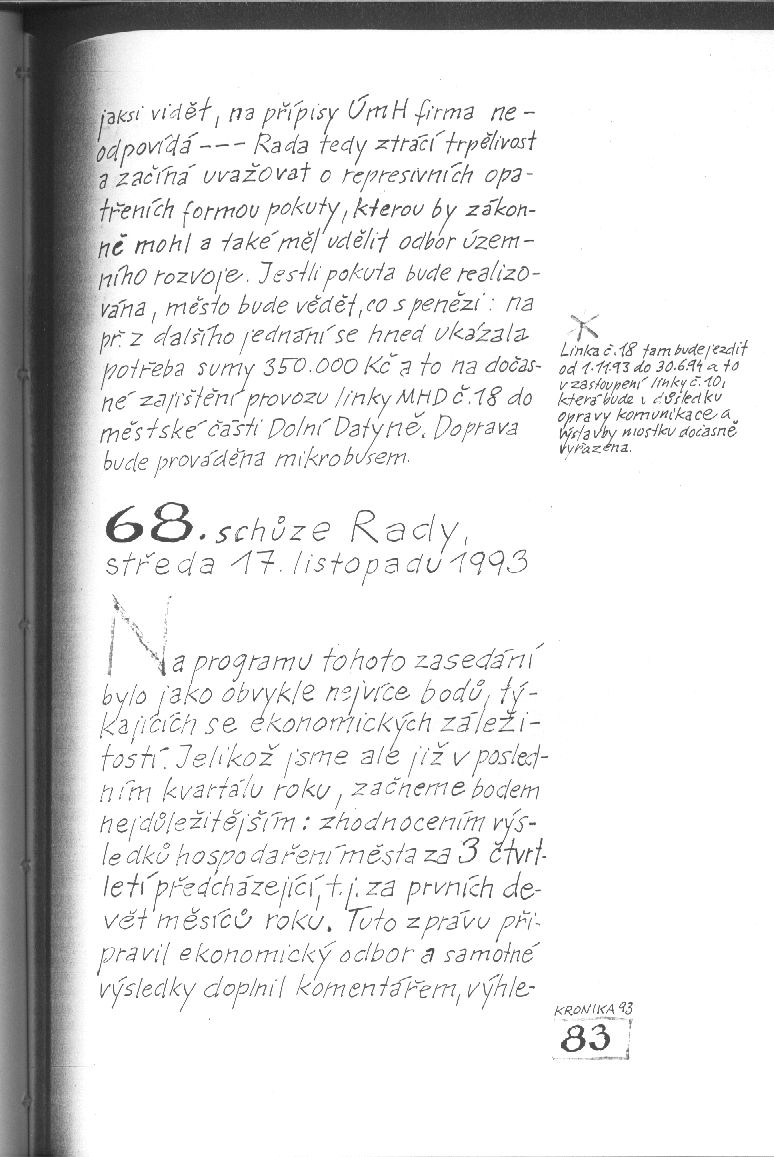 jaksi vidět, na přípisy ÚmH firma ne-
odpovídá --- Rada tedy ztrácí trpělivost
a začíná uvažovat o represivních opa-
třeních formou pokuty, kterou by zákon-
ně mohl a také měl udělit odbor územ-
ního rozvoje. Jestli pokuta bude realizo-
vána, město bude vědět, co s penězi: na
př. z dalšího jednání se hned ukázala
potřeba sumy 350.000 Kč a to na dočas-
né zajištění provozu linky MHD č.18 do
městské části Dolní Datyně. Doprava
bude prováděna mikrobusem.
Linka č.18 tam bude jezdit
od 1.11.93 do 30.6.94 a to
v zastoupení linky č.10,
která bude v důsledku
opravy komunikace a
výstavby mostku dočasně
vyřazena.
68. schůze Rady,
středa 17. listopadu 1993
Na programu tohoto zasedání
bylo jako obvykle nejvíce bodů, tý-
kajících se ekonomických záleži-
tostí. Jelikož jsme ale již v posled-
ním kvartálu roku, začneme bodem
nejdůležitějším: zhodnocením výs-
ledků hospodaření města za 3 čtvrt-
letí předcházející, t.j. za prvních de-
vět měsíců roku. Tuto zprávu při-
pravil ekonomický odbor a samotné
výsledky doplnil komentářem, výhle-
KRONIKA 93
83